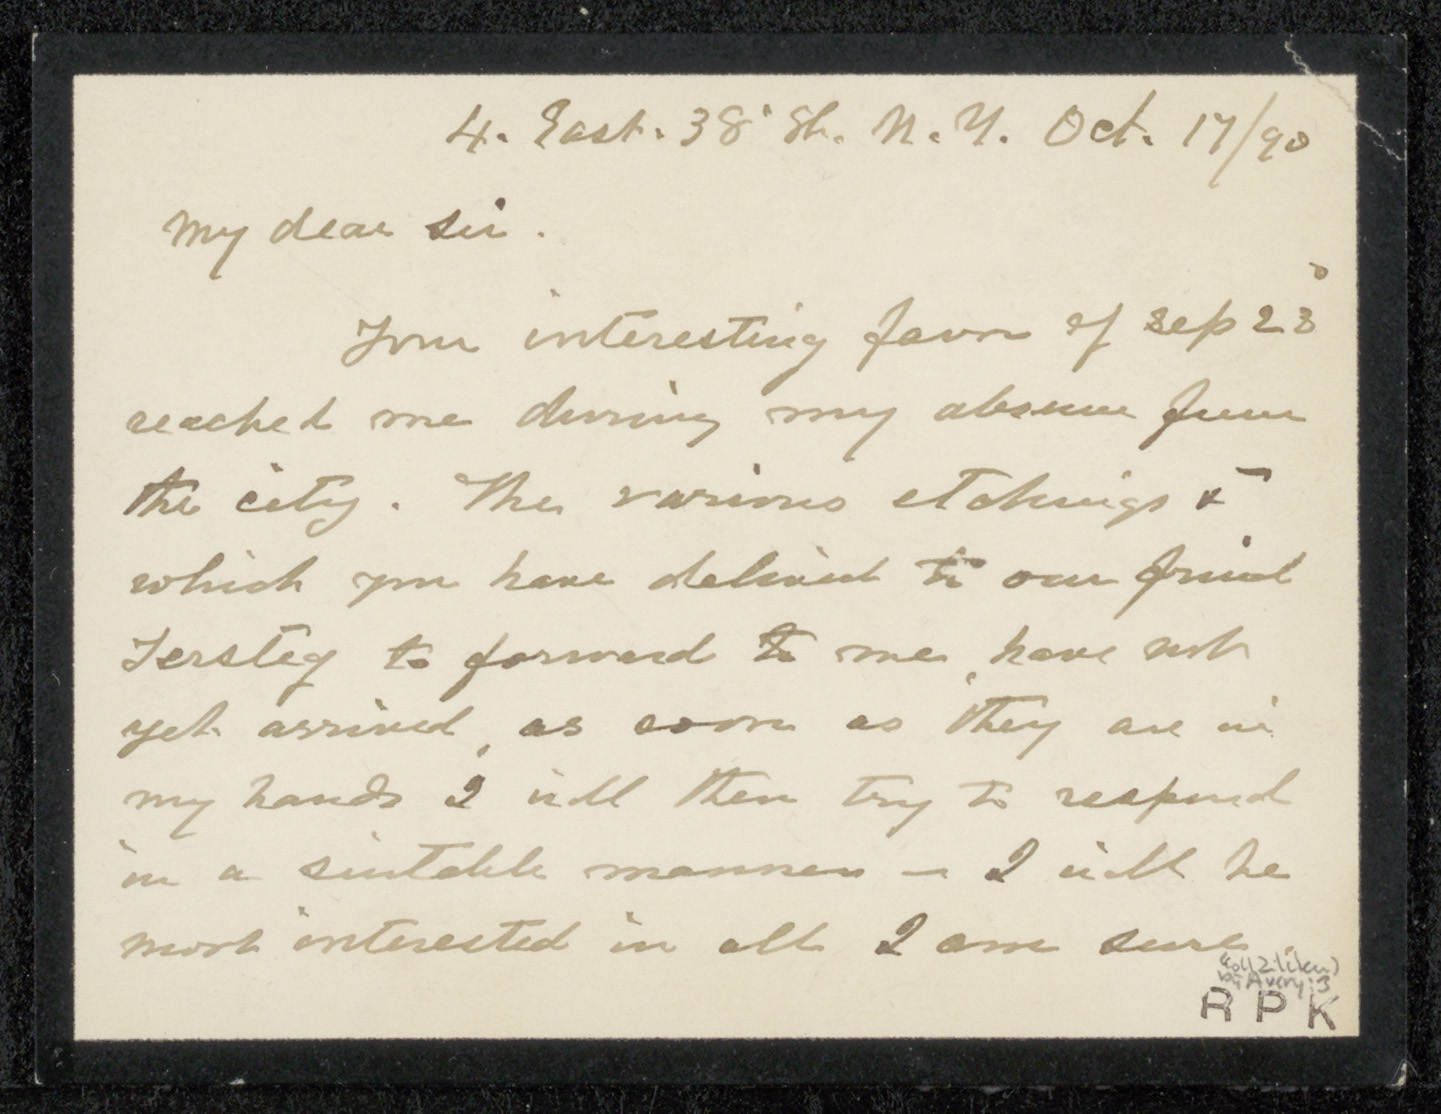 4. East. 38' St. N. Y. Oct. 17/90
My dear Sir.
Your interesting favor of Sep 23°
reached me during my absence from
the city. The various etchings &
which you have delivered to our friend
Tersteg to forward to me, have not
yet arrived, as soon as they are in
my hands I will then try to respond
in a suitable manner – I will be
most interested in all I am sure.
Avery: 3
R P K